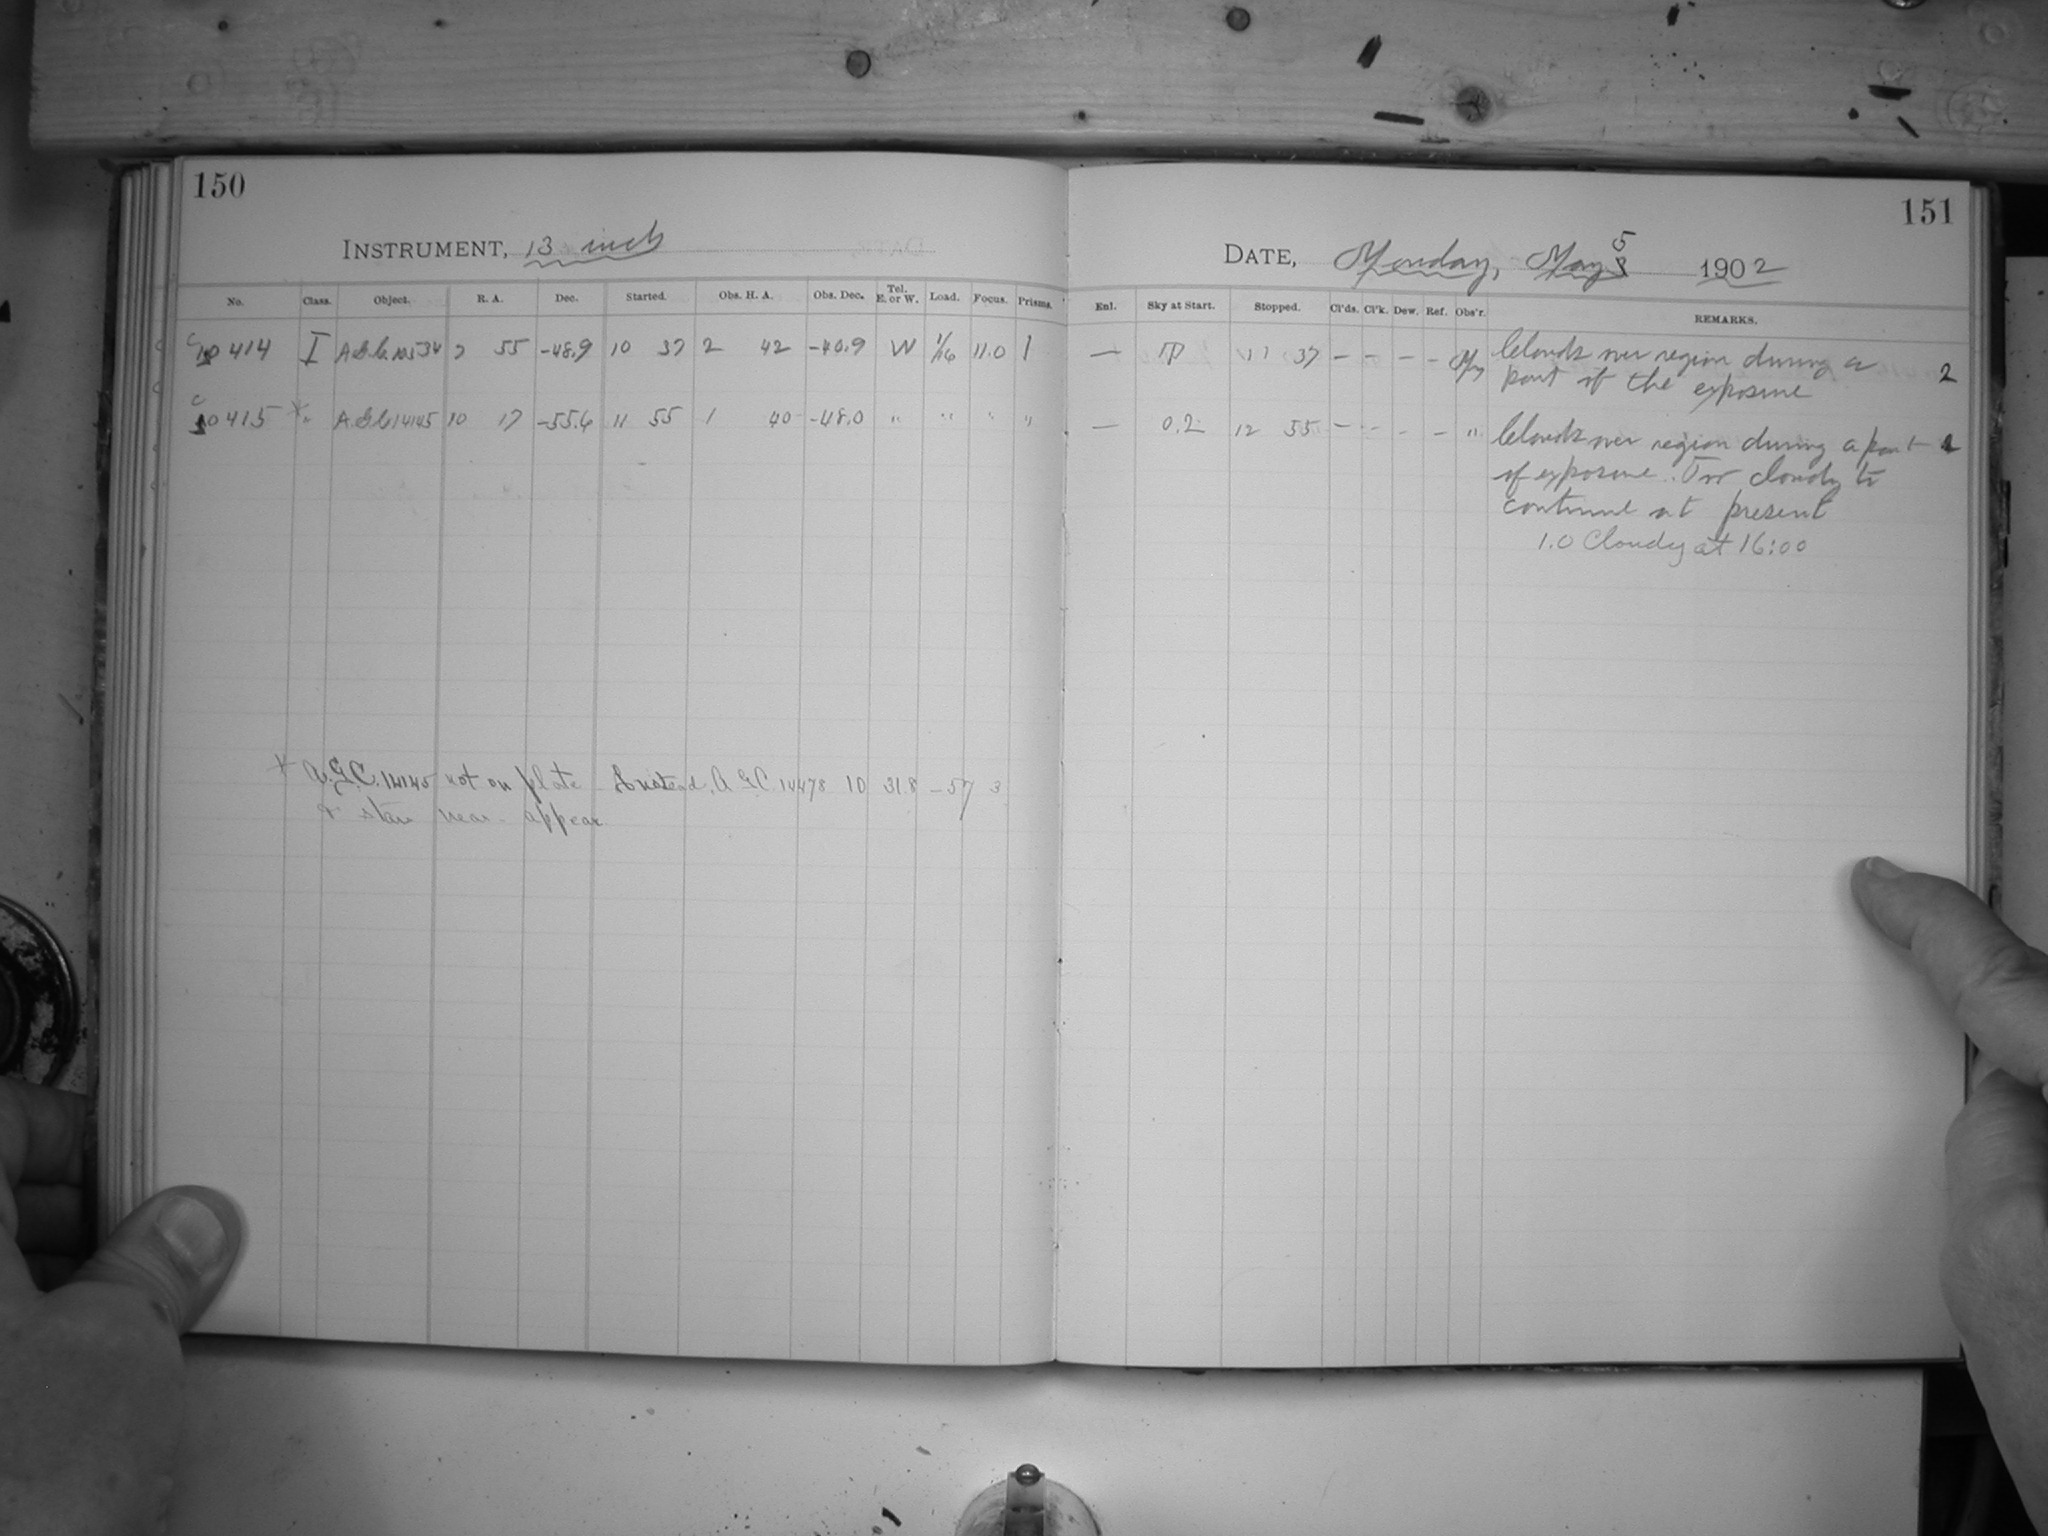 150
INSTRUMENT, 13 inch
No. Class. Object. R. A. Dec. Started. Obs. H. A. Obs. Dec. Tel. E. or W. Load. Focus. Prisms.
10414 I A.G.C. 10534 7 55 -48.9 10 37 2 42 -40.9 W 1/16 11.0 1
10415 * " A.G.C. 14145 10 17 -55.6 11 55 1 40 -48.0 " " " "
* A.G.C. 14145 not on plate. Instead, A.G.C. 14478 10 31.8 -57 3
& stars near appear.
151
DATE, Monday, May 5 1902
Enl. Sky at Start. Stopped. Cl'ds. Cl'k. Dew. Ref. Obs'r. REMARKS.
— 11 37 — — — — Clouds over region during a
part of the exposure 2
— 0.2 12 55 — — — — " Clouds over region during a part
of exposure. Too cloudy to
continue at present
1.0 Cloudy at 16:00